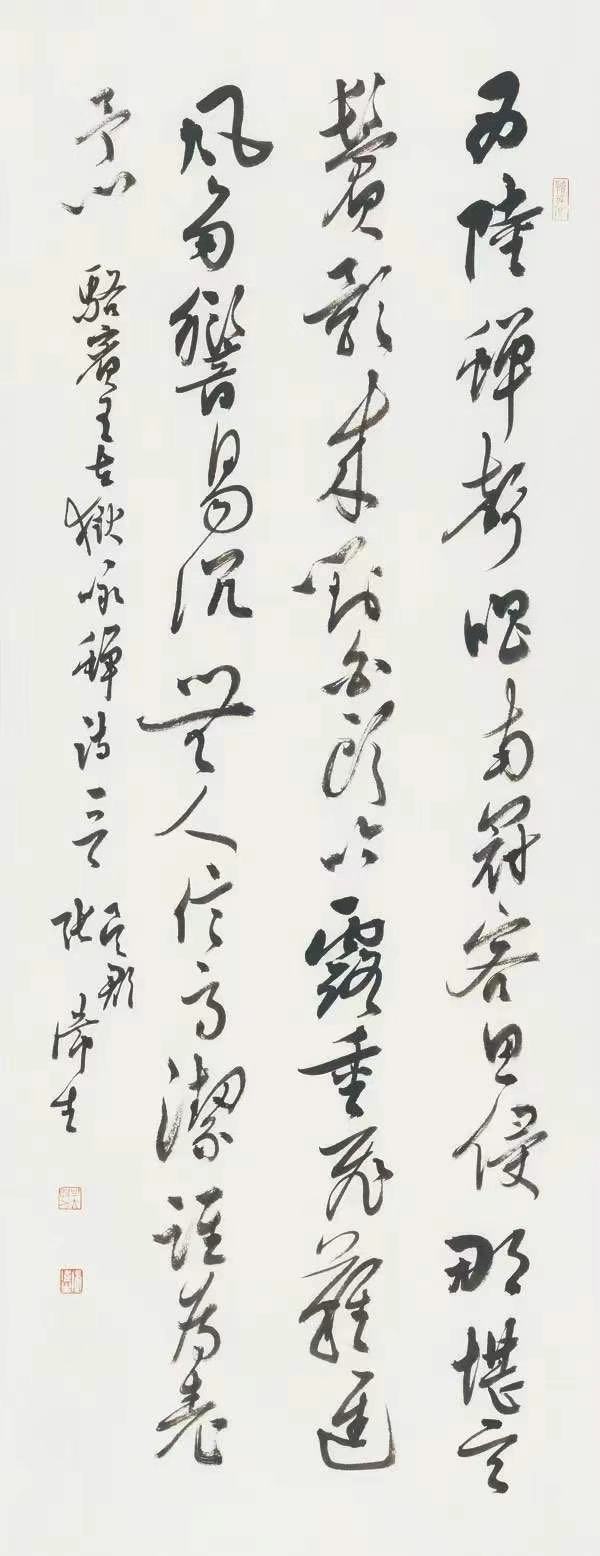 西陸蟬聲唱南冠客思侵那堪玄
鬢影來對白頭吟露重飛難進
風多響易沉無人信高潔誰為表
予心 駱賓王在獄詠蟬詩一首 吳郡張